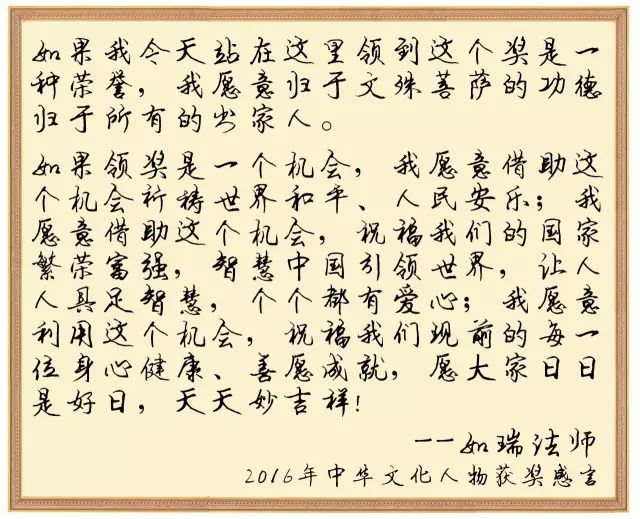 如果我今天站在这里领到这个奖是一
种荣誉，我愿意归于文殊菩萨的功德
归于所有的出家人。
如果领奖是一个机会，我愿意借助这
个机会祈祷世界和平、人民安乐；我
愿意借助这个机会，祝福我们的国家
繁荣富强，智慧中国引领世界，让人
人具足智慧，个个都有爱心；我愿意
利用这个机会，祝福我们现前的每一
位身心健康、善愿成就，愿大家日日
是好日，天天妙吉祥！
——如瑞法师
2016年中华文化人物获奖感言